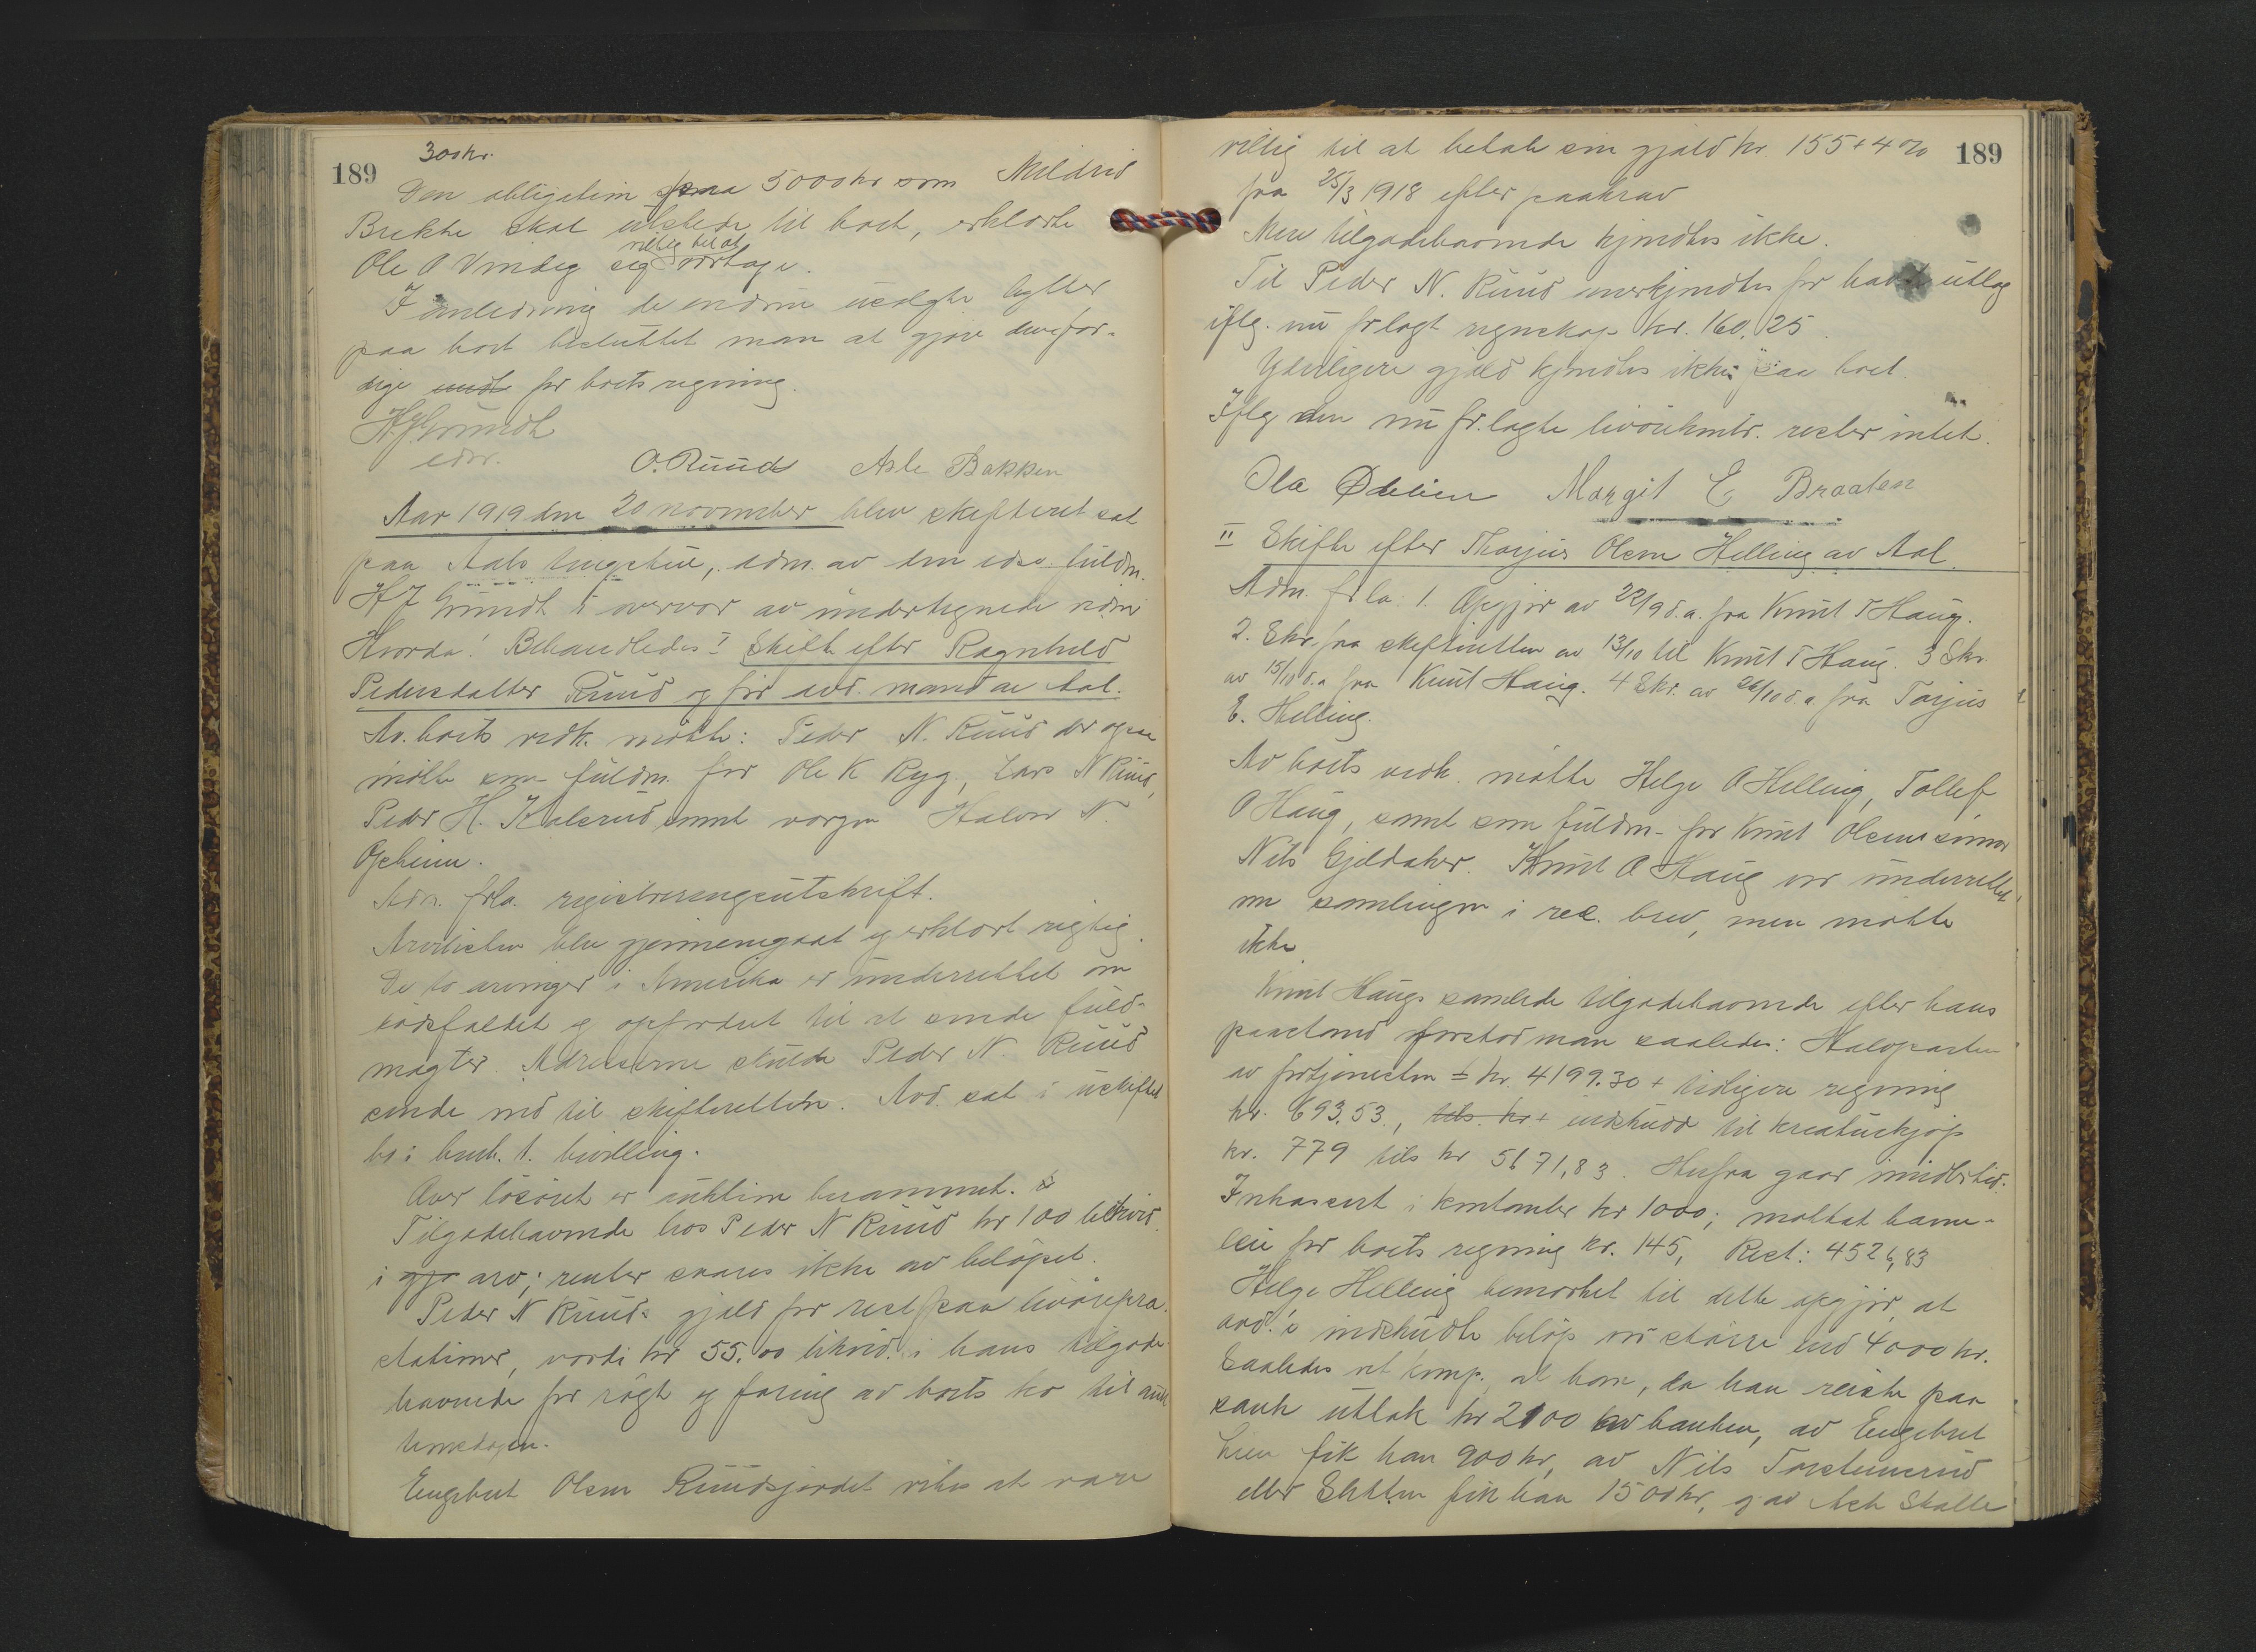 300 kr.
189
Den obligation paa 5000 kr som Mildrid
Brekke skal utstede til boet, erklærte
villig til at
Ole O Vindeg sig overtage.
I anledning de endnu usolgte hytter
paa boet besluttet man at gjøre
dige for boets regning.
H J Grundt
edsv.
O. Ruud Asle Bakken
Aar 1919 den 20 november blev skifteret sat
paa Aals tingstue, adm. av den edsv. fuldm.
H J Grundt i overvær av undertegnede vidner
Hvorda: Behandledes I Skifte efter Ragnhild
Pedersdatter Ruud og før avd. mand av Aal.
Av boets vedk. møtte: Peder N. Ruud der ogsaa
møtte som fuldm. for Ole K Ryg, Lars N Ruud,
Peder H. Kalsrud samt vergen Halvor N.
Opheim.
Adm. frla. registreringsutskrift.
Arvelisten blev gjennemgaat og erklært rigtig.
De to arvinger i Amerika er underrettet om
dødsfaldet og opfordret til at sende fuld-
magter. Adresserne skulde Peder N. Ruud
sende ned til skifteretten. Avd. sat i uskiftet
bo i henh. t. bevilling.
Over løsøret er auktion berammet.
Tilgodehavende hos Peder N Ruud kr 100 likvid.
i arv; renter svares ikke av beløpet.
Peder N Ruuds gjæld for rest paa livørepræ-
stationer, værdi kr 55.00 likvid. i hans tilgode-
havende for røgt og foring av boets ko til auk
tionsdagen.
Engebret Olsen Ruudsjordet vites at være
villig til at betale sin gjæld kr. 155 + 4 %
189
fra 25/3 1918 efter paakrav
Mere tilgodehavende kjendtes ikke.
Til Peder N. Ruud anerkjendtes for havt utlæg
iflg. nu frlagt regnskap kr. 160,25.
Yderligere gjæld kjendtes ikke paa boet.
Iflg den nu fr.lagte livørekontr. rester intet.
Ola Ødelien Margit E Braaten
II Skifte efter Thorjus Olsen Helling av Aal.
Adm. frla: 1. Opgjør av 22/9 d.a. fra Knut T Haug.
2. Skr. fra skifteretten av 13/10 til Knut T Haug. 3 Skr.
av 15/10 d.a fra Knut Haug. 4 Skr. av 26/10 d.a fra Torjus
E. Helling.
Av boets vedk. møtte Helge O Helling, Tollef
O Haug, samt som fuldm. for Knut Olsens sønner
Nils Gjeldaker. Knut O Haug var underrettet
om samlingen i rec. brev, men møtte
ikke
Knut Haugs samlede tilgodehavende efter hans
paastand forstod man saaledes: Halvparten
av fortjenesten = kr. 4199.30 + tidligere regning
kr. 693.53., tils. kr + indskudd til kreaturkjøp
kr. 779 tils kr 5671,83. Herfra gaar imidlertid:
Inkassert i kontanter kr 1000; mottat havne-
leie for boets regning kr. 145, Rest: 4526,83
Helge Helling bemærket til dette opgjør, at
avd.'s indskudte beløp var større end 4000 kr.
Saaledes vet komp. at han, da han reiste paa
sauk uttok kr 2100 av banken, av Engebret
Lien fik han 900 kr, av Nils Torsteinsrud
eller Slåtten fik han 1500 kr, og av Ask Skalle